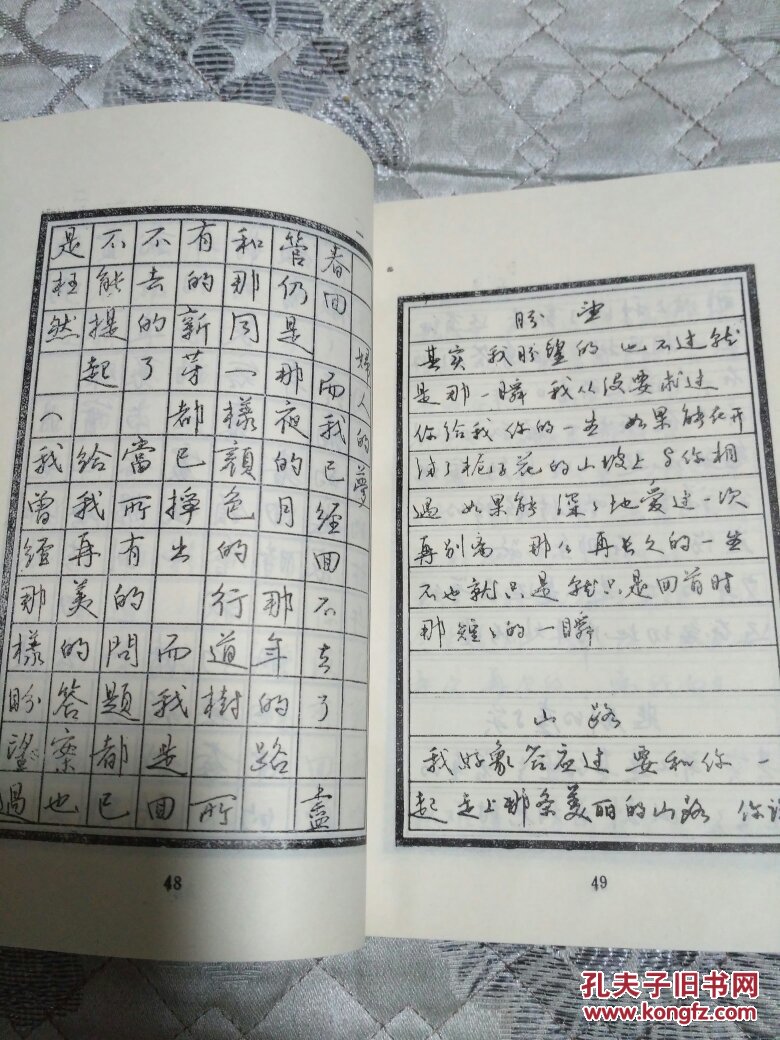 婦人的夢
春回 而我已經回不去了 盡
管仍是那夜的月 那年的路
和那同一樣顏色的行道樹 所
有的新芽都已掙出 而我是回
不去的了 當所有的問題都已
不能提起 給我再美的答案也
是枉然 (我曾經那樣盼望過
48
盼望
其实 我盼望的 也不过就
是那一瞬 我从没要求过
你给我 你的一生 如果能在开
满了栀子花的山坡上 与你相
遇 如果能 深深地爱过一次
再别离 那么 再长久的一生
不也就只是 就只是 回首时
那短短的一瞬
山路
我好象答应过 要和你 一
起 走上那条美丽的山路 你说
49
孔夫子旧书网
www.kongfz.com